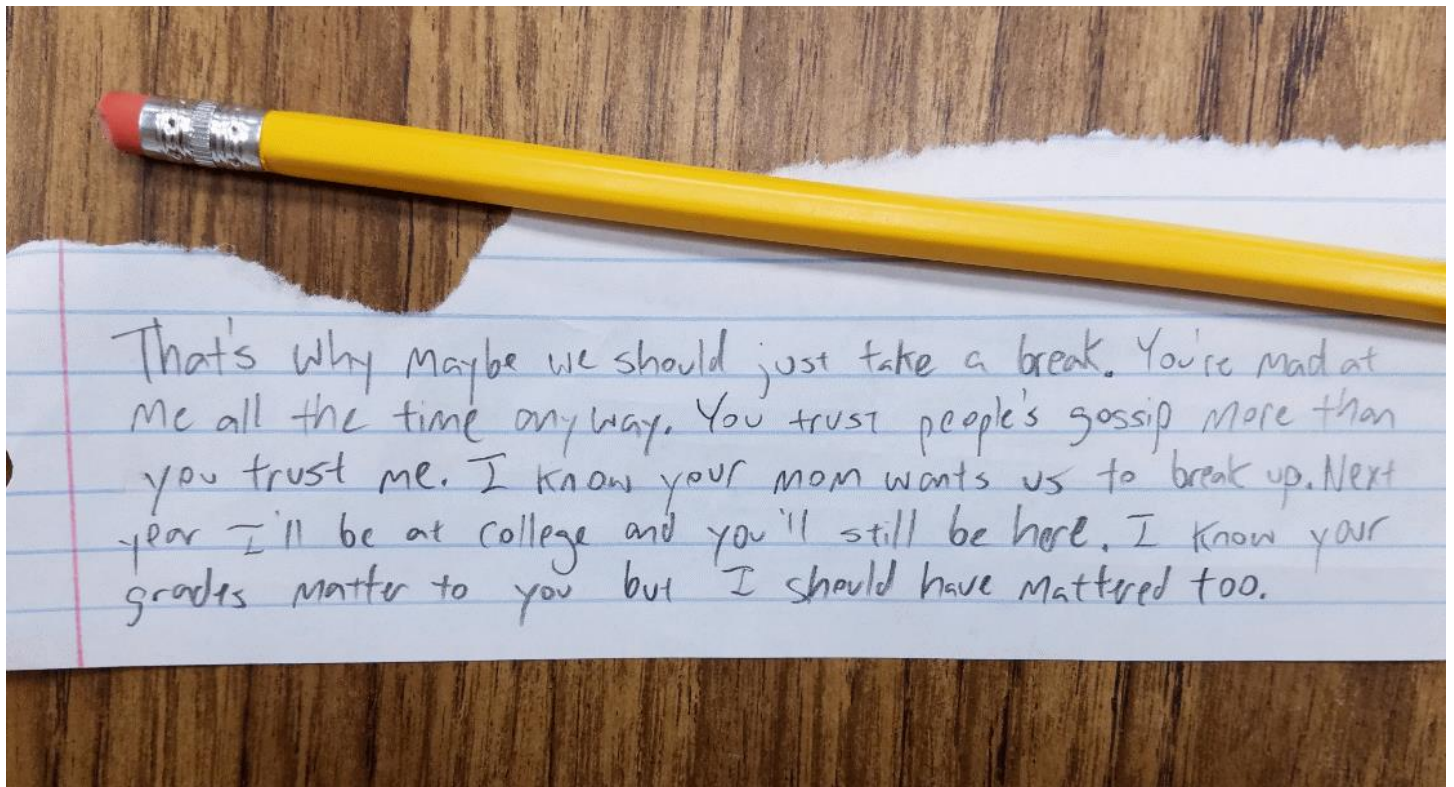 That's why maybe we should just take a break. You're mad at
me all the time anyway. You trust people's gossip more than
you trust me. I know your mom wants us to break up. Next
year I'll be at college and you'll still be here. I know your
grades matter to you but I should have mattered too.